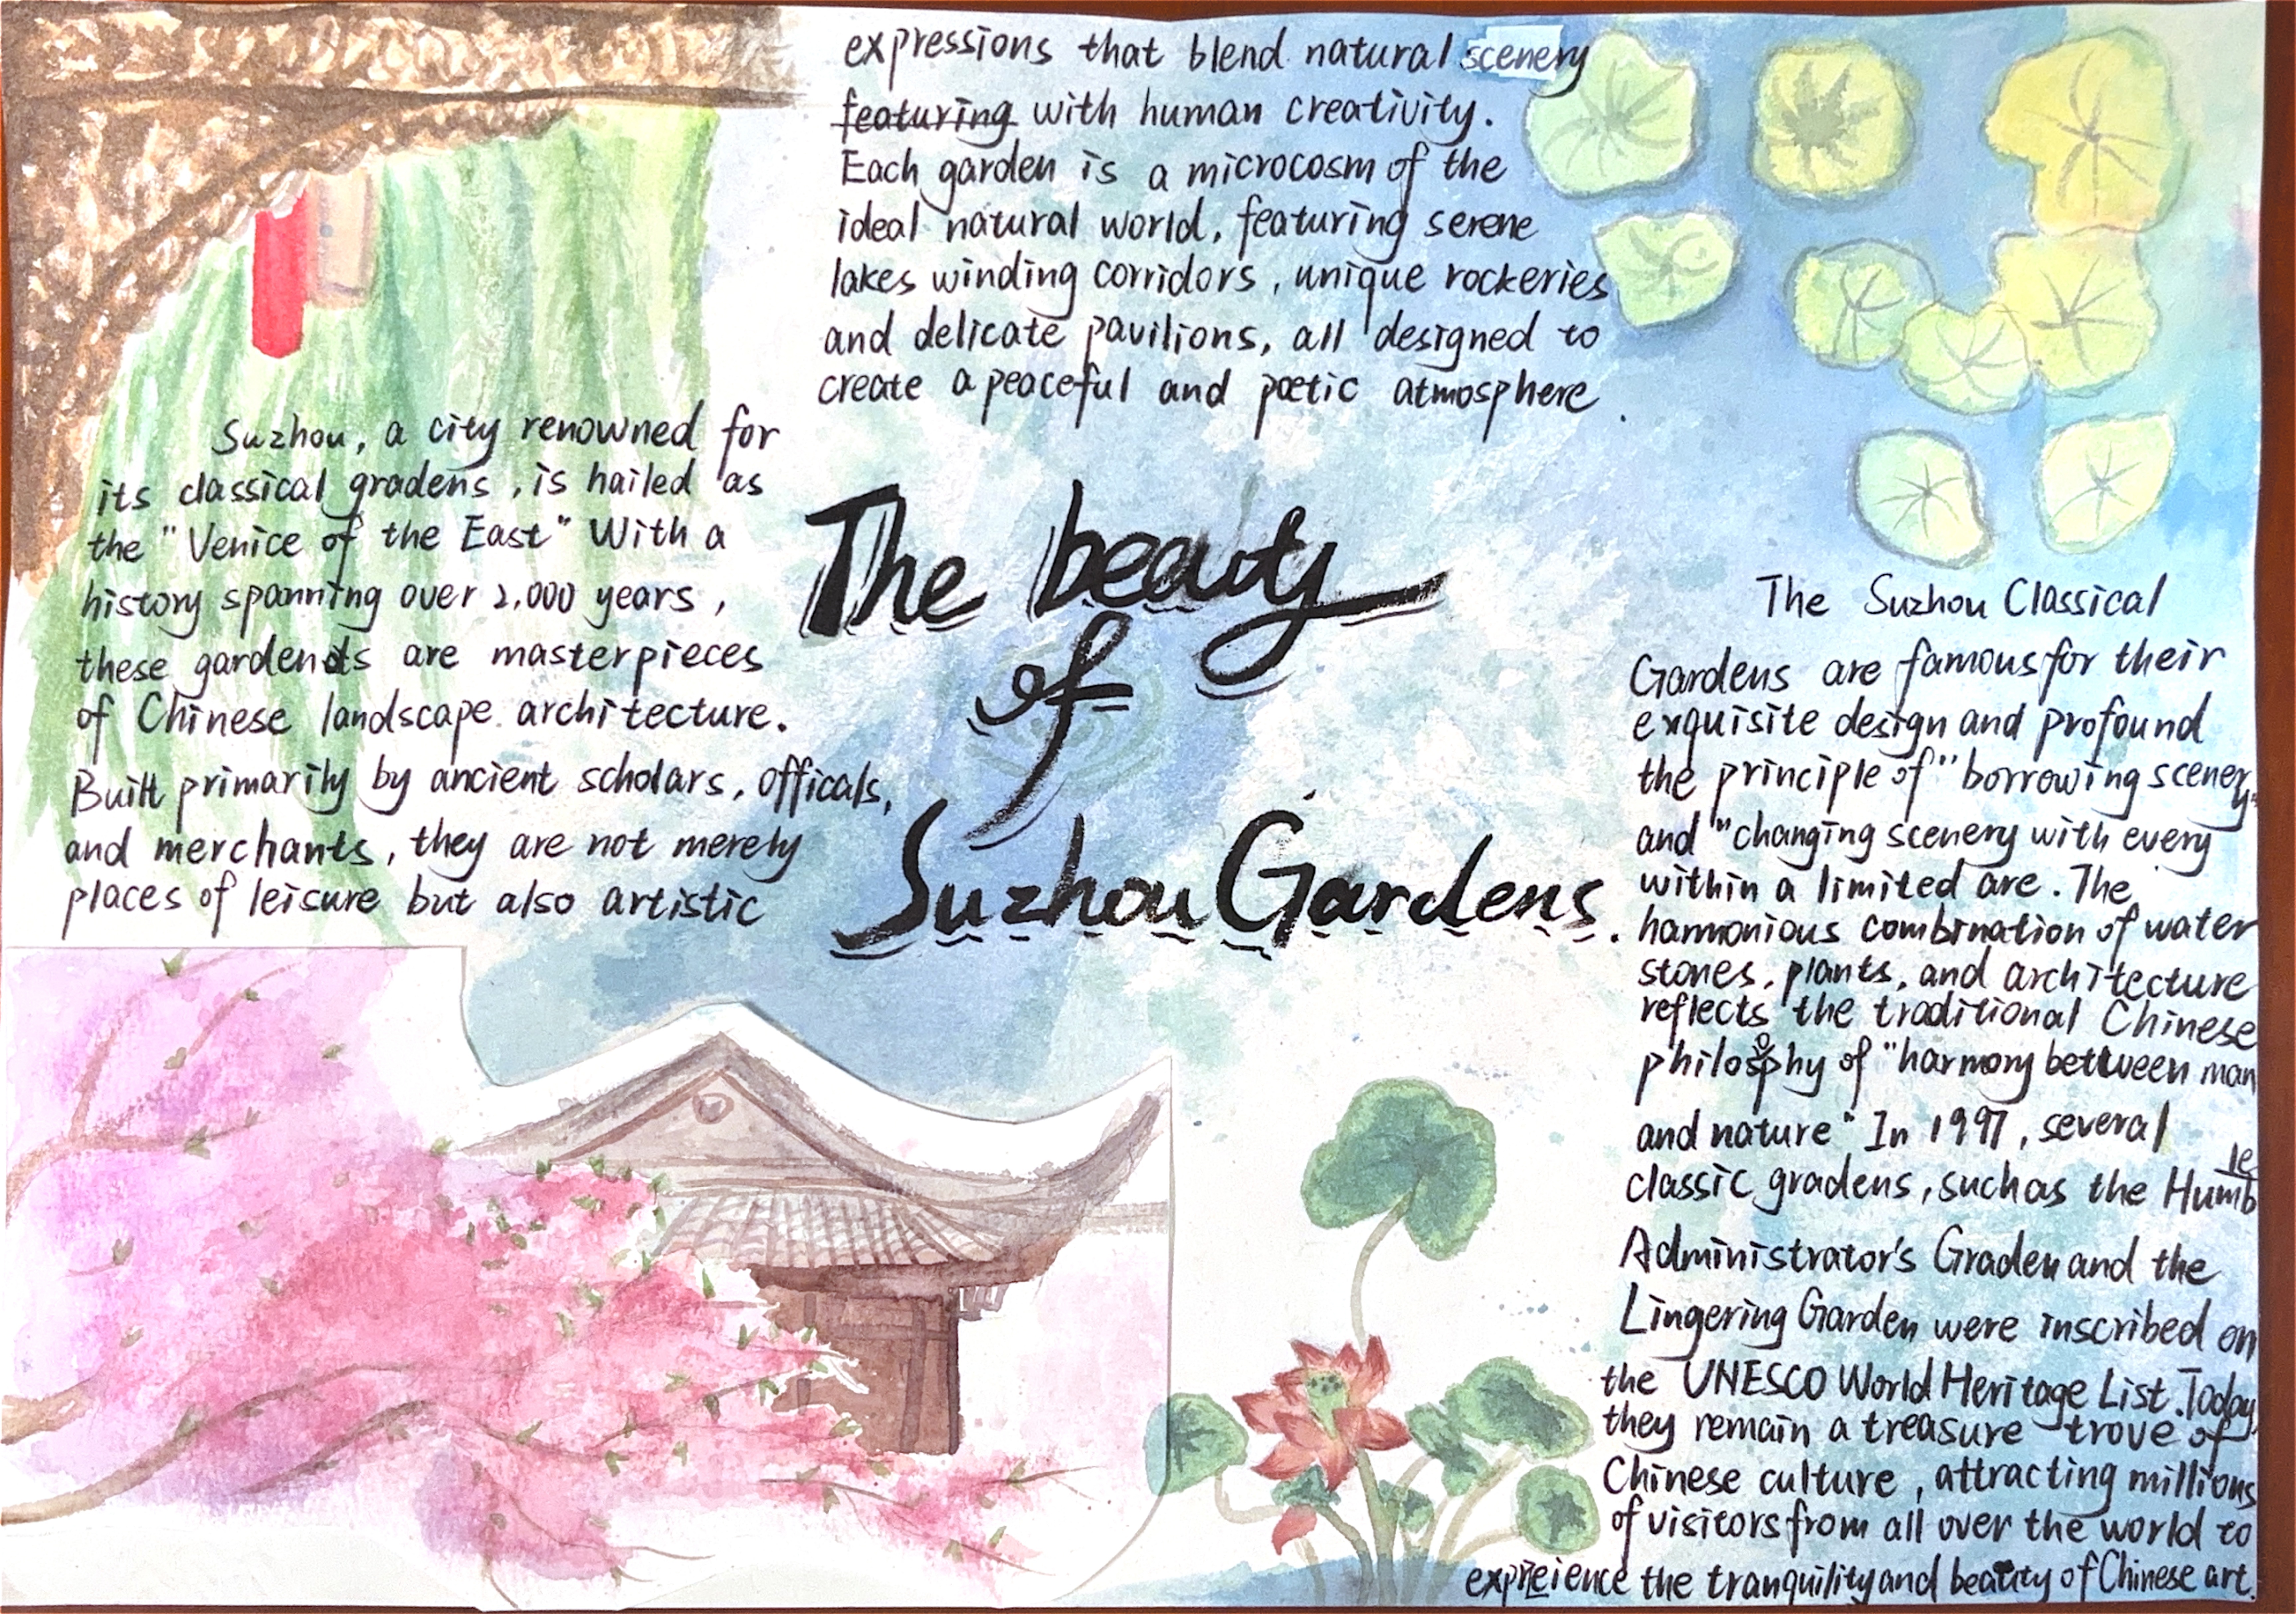 The beauty
of
Suzhou Gardens.
Suzhou, a city renowned for
its classical gradens, is hailed as
the "Venice of the East" With a
history spanning over 2,000 years,
these gardends are masterpieces
of Chinese landscape architecture.
Built primarily by ancient scholars, officals,
and merchants, they are not merely
places of leisure but also artistic
expressions that blend natural scenery
featuring with human creativity.
Each garden is a microcosm of the
ideal natural world, featuring serene
lakes winding corridors, unique rockeries
and delicate pavilions, all designed to
create a peaceful and poetic atmosphere.
The Suzhou Classical
Gardens are famous for their
exquisite design and profound
the principle of "borrowing scenery"
and "changing scenery with every
within a limited are. The
harmonious combination of water
stones, plants, and architecture
reflects the traditional Chinese
philosophy of "harmony between man
and nature" In 1997, several
classic gradens, such as the Humble
Administrator's Graden and the
Lingering Garden were inscribed on
the UNESCO World Heritage List. Today
they remain a treasure trove of
Chinese culture, attracting millions
of visitors from all over the world to
expreience the tranquility and beauty of Chinese art.